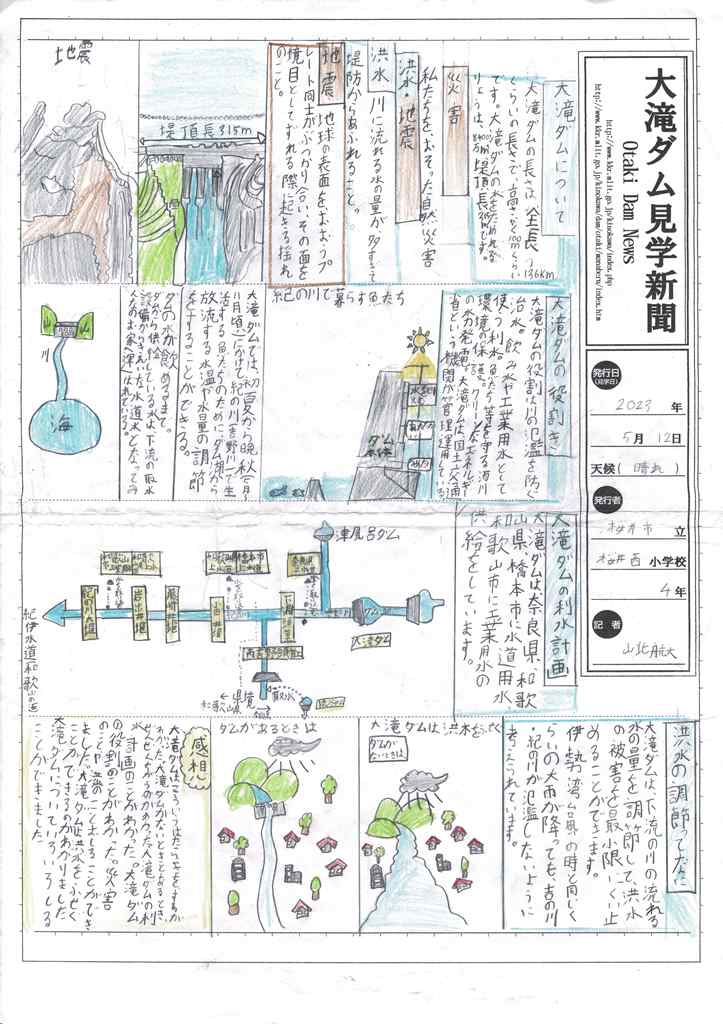 大滝ダム見学新聞
Otaki Dam News
http://www.kkr.mlit.go.jp/kinokawa/index.php
発行日
(見学日)
2023年
5月12日
天候(晴れ)
発行者
桜井市立
桜井西小学校
4年
記者
大滝ダムについて
大滝ダムの長さは(全長)
136Km
くらいの長さで、高さ
です。大滝ダムの水をためれる
堤頂長315mです。
災害
私たちを、おそった自然災害
洪水・地震
洪水 川に流れる水の量が多すぎて
堤防からあふれること。
地震 地球の表面を、おおうプ
レート同士がぶつかり合い、その面を
境目としてずれる際に起きる揺れ
のこと。
堤頂長315m
地震
大滝ダムの役割き
大滝ダムの役割は川の氾濫を防ぐ
治水。飲み水や工業用水として
使う利水
環境の保護。クリーンなエネルギー
の水力発電。大滝ダムは国土交通
省という機関が管理運用している
ダム
本体
紀の川で暮らす魚たち
大滝ダムでは、初夏から晩秋(
月頃)にかけて、紀の川(吉野川)で生
活する魚たちのために、ダム湖から
放流する水温や水量の調節
をすることができる。
ダムの水が飲めるまで。
ダムから供給している水は、下流の取水
山
山
川
海
大滝ダムの利水計画
大滝ダムは、奈良県、和歌
山県、橋本市に水道用水
和歌山市に工業用水の
供給をしています。
津風呂ダム
大滝ダム
下渕頭首
西吉野頭首
取水
県境
和歌山県
奈良
小田井堰
藤崎井堰
岩出井堰
紀の川大堰
紀伊水道(和歌山の海)
洪水の調節ってなに
大滝ダムは、下流の川の流れる
水の量を調節して、洪水
の被害を最小限にくい止
めることができます。
伊勢湾台風の時と同じく
らいの大雨が降っても、吉の川
・紀の川が氾濫しないように
考えられています。
大滝ダムは洪水をふせぐ
ダムが
ないときは
ダムがあるときは
感想
水計画のことがわかった。大滝ダム
の役割のことがわかった。災害
ました。大滝ダムは洪水をふせぐ
ことができるのがわかりました
大滝ダムについていろいろしる
ことができました